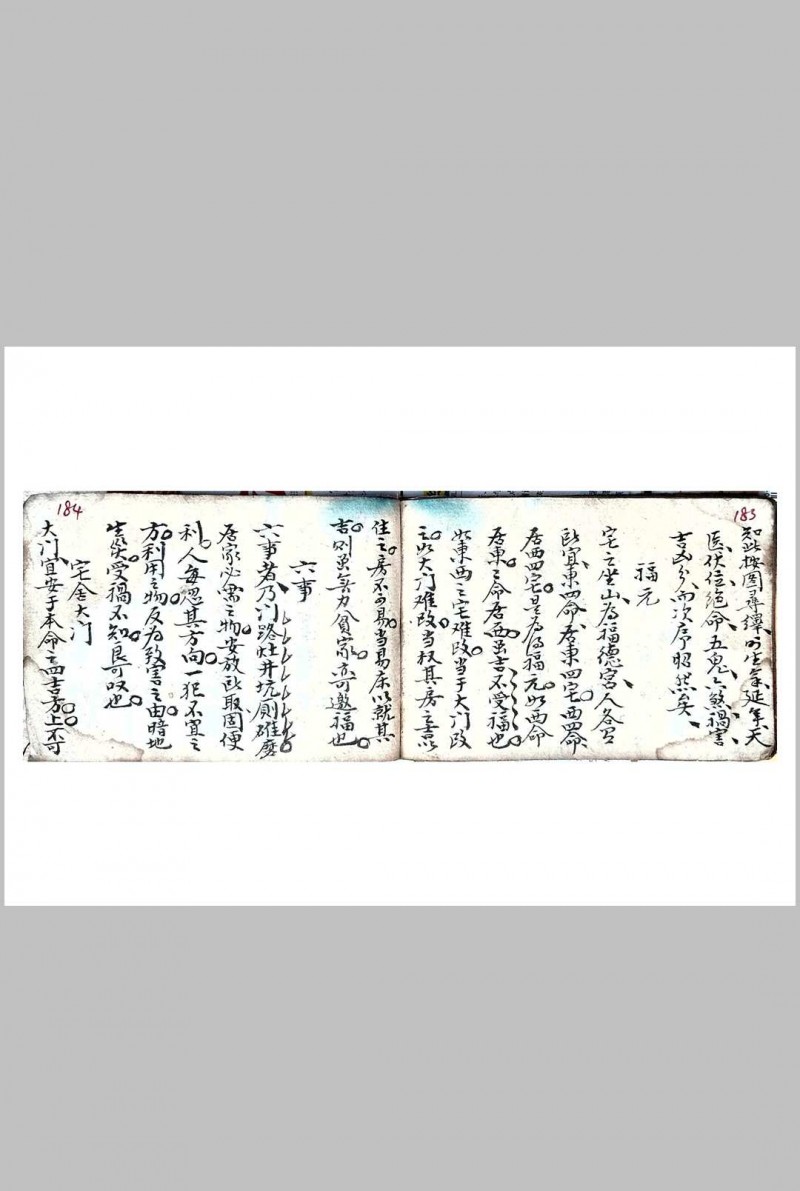 183
知此按图寻绎明生气延年天
医伏位绝命五鬼六煞祸害
吉凶分而次序昭然矣
福元
宅之坐山为福德宫人各有
所宜东四命居东四宅西四命
居西四宅是为得福元如西命
居东东命居西虽吉不受福也
如东西之宅难改当于大门改
之如大门难改当权其房之吉以
住之房不可易当易床以就其
吉则虽無力貧家亦可邀福也
184
六事
六事者乃门路灶井坑厕碓磨
居家必需之物安放所取图便
利人每忽其方向一犯不宜之
方利用之物反为致害之由暗地
生灾受禍不知良可叹也
宅舍大门
大门宜安于本命之四吉方上不可